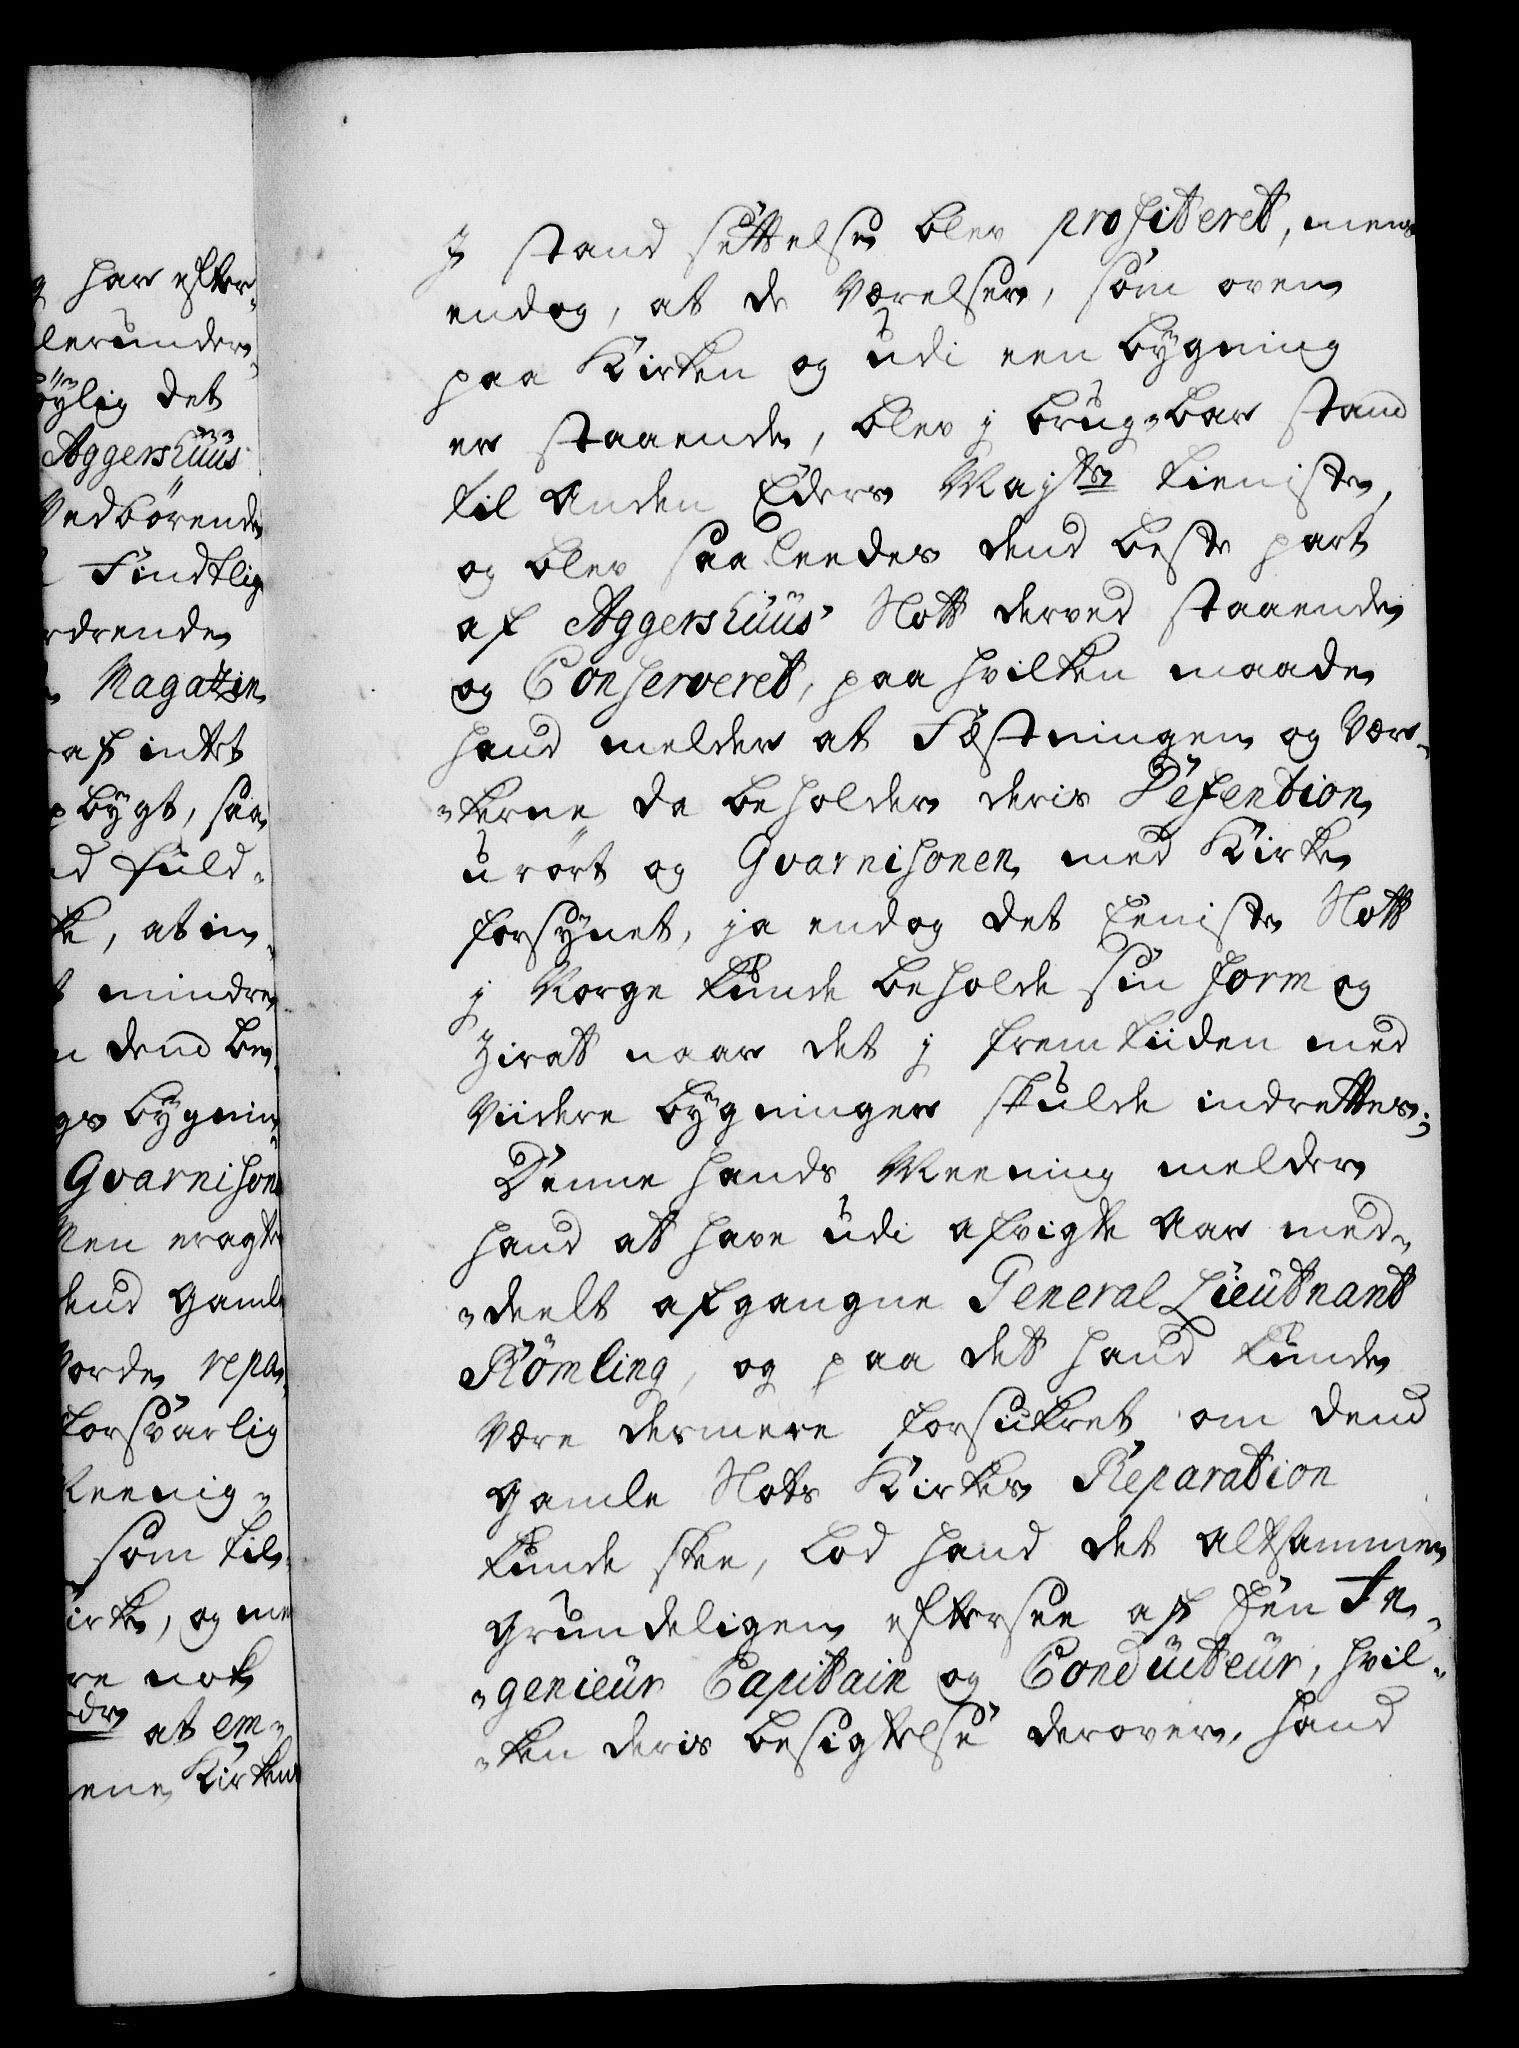 har efter-
lerunder-
öÿlig det
Aggershuus
Vedbörende
Findtlig
rdrende
Magatzin
af intet
bÿgt, saa
fuld-
, at in-
mindre
dend be-
gs bÿgnin-
Gvarnison
Men eragte
dend gamle
Vorde repa-
forsvarlig
Meenig-
som til-
irke, og me
re nok
at em-
ene Kirken
J stand settelse blev profiteret, mens
endog, at de Værelser, som oven
paa Kirken og udi een bÿgning
er staaende, blev j brug-bar stand
til anden Eders Mayts tieniste,
og blev saaleedes dend beste part
af Aggershuus Slott derved staaende
og Conserveret, paa hvilken maade
hand melder at Fæstningen og Vær-
-kerne da beholder deris Defention
urört og Gvarnisonen med Kirke
forsÿnet, ja endog det Eeniste Slott
j Norge kunde beholde sin form og
Zirat naar det j fremtiiden med
Viidere bÿgninger skulde indrettes;
Denne hands Meening melder
hand at have udi afvigte Aar med-
-deelt afgangne General Lieutnant
Römling, og paa det hand kunde
Være dermere forsikret om dend
gamle Slots Kirkes Reparation
kunde skee, lod hand det altsammen
grundeligen eftersee af Een In-
-genieur Capitain og Conducteur, hvil-
-ken deris besigtelse derover, hand